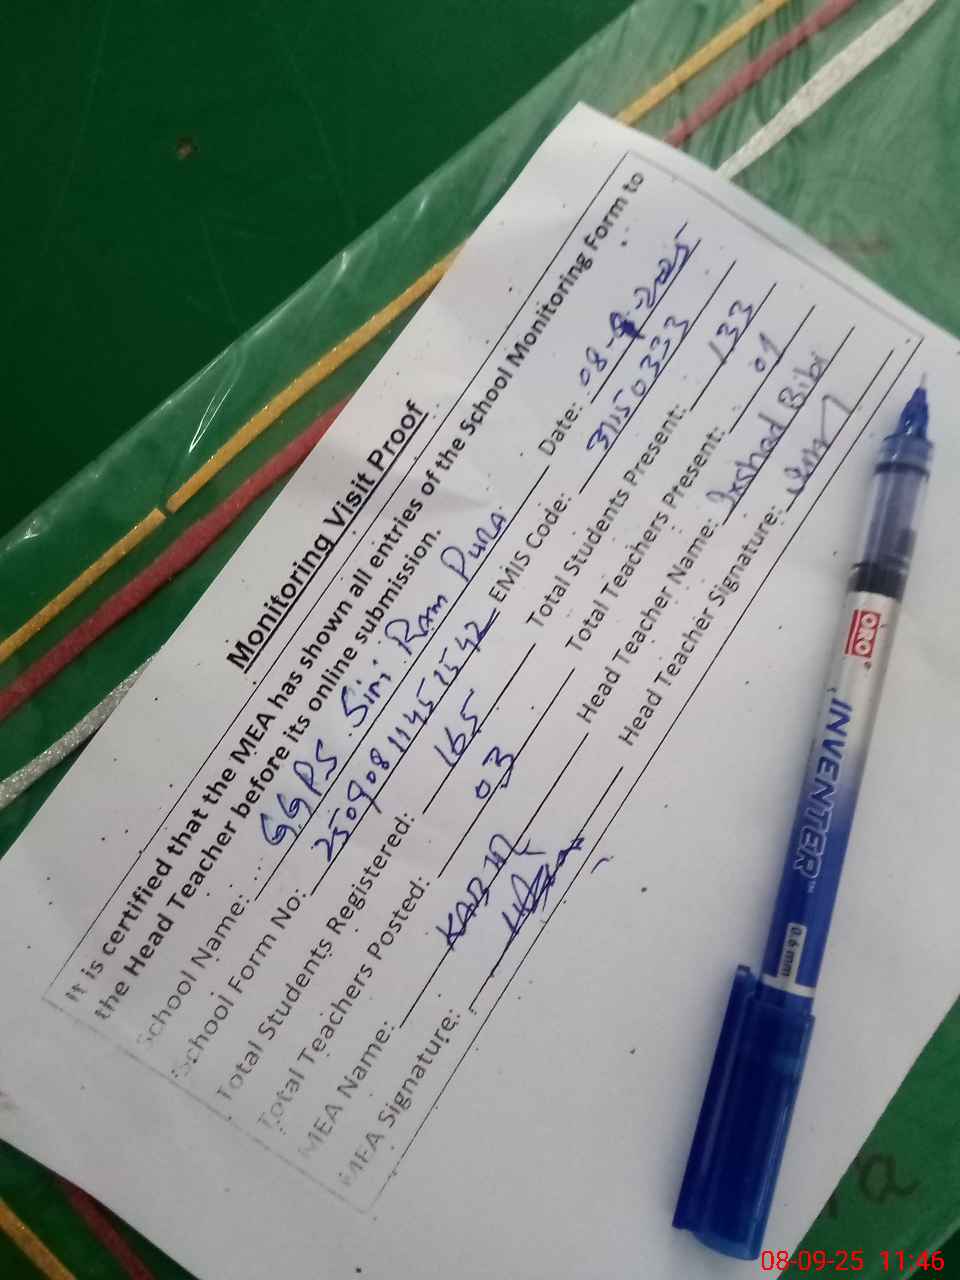 Monitoring Visit Proof
It is certified that the MEA has shown all entries of the School Monitoring Form to
the Head Teacher before its online submission.
School Name: GGPS Siri Ram Pura Date: 08-9-2025
School Form No: EMIS Code: 37150333
Total Students Registered: 165 Total Students Present: 133
Total Teachers Posted: 03 Total Teachers Present: 01
MEA Name: KABIR Head Teacher Name: Irshad Bibi
MEA Signature: Head Teacher Signature:
ORO
INVENTER™
0.6 mm
08-09-25 11:46